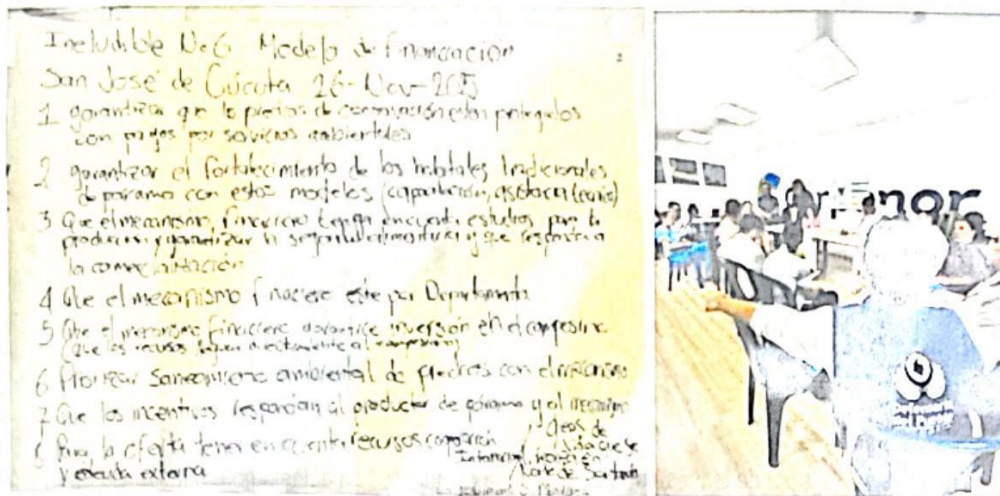 Ineludible No 6 Modelo de financiación
San José de Cúcuta 26-Nov-2015
1 garantizar que los predios de conservación estén protegidos
con pagos por servicios ambientales
2 garantizar el fortalecimiento de los habitantes tradicionales
de páramo con estos modelos (capacitación, asistencia
3 Que el mecanismo financiero tenga en cuenta estudios para la
producción y garantizar la seguridad alimentaria y que responda a
la comercialización
4 Que el mecanismo financiero este por Departamento
5 Que el mecanismo financiero garantice inversión en el campesino
(Que los recursos lleguen directamente al campesino)
6 Priorizar Saneamiento ambiental de predios con el mecanismo
7 Que los incentivos respondan al productor de páramo y el
8 Para la oferta tener en cuenta recursos
y externa
Norte de